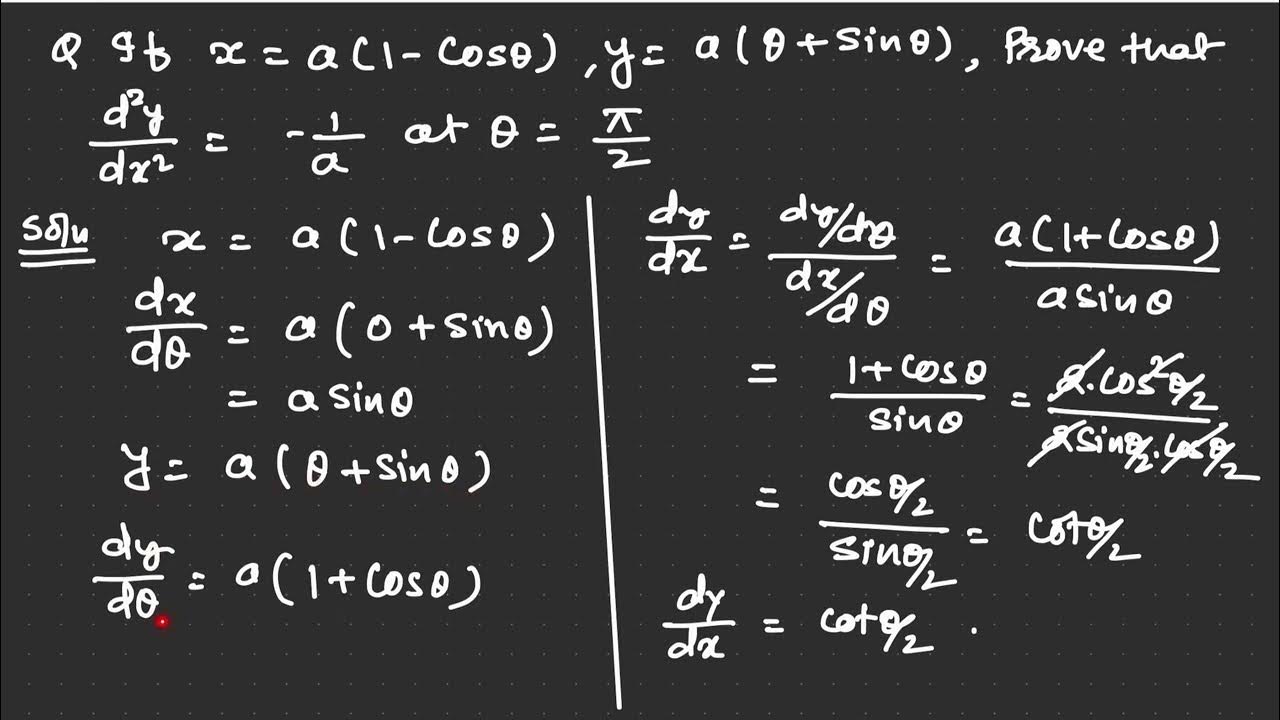 Q If x = a(1 - Cosθ), y = a(θ + Sinθ), Prove that
d²y/dx² = -1/a at θ = π/2
Soln x = a(1 - Cosθ)
dx/dθ = a(0 + Sinθ)
= a Sinθ
y = a(θ + Sinθ)
dy/dθ = a(1 + Cosθ)
dy/dx = (dy/dθ)/(dx/dθ) = a(1 + Cosθ)/a Sinθ
= (1 + Cosθ)/Sinθ = 2·Cos²θ/2 / 2Sinθ/2·Cosθ/2
= Cosθ/2 / Sinθ/2 = Cotθ/2
dy/dx = Cotθ/2 .